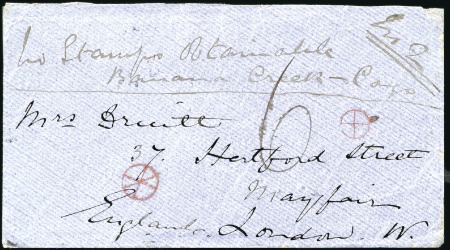 No Stamps Obtainable
Banana Creek - Congo
6
Mrs Druitt
37. Hertford Street
Mayfair
England. London W.